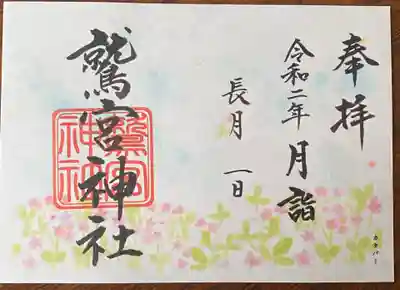 奉拝
令和二年 月詣
長月 一日
鷲宮神社
鷲宮
神社